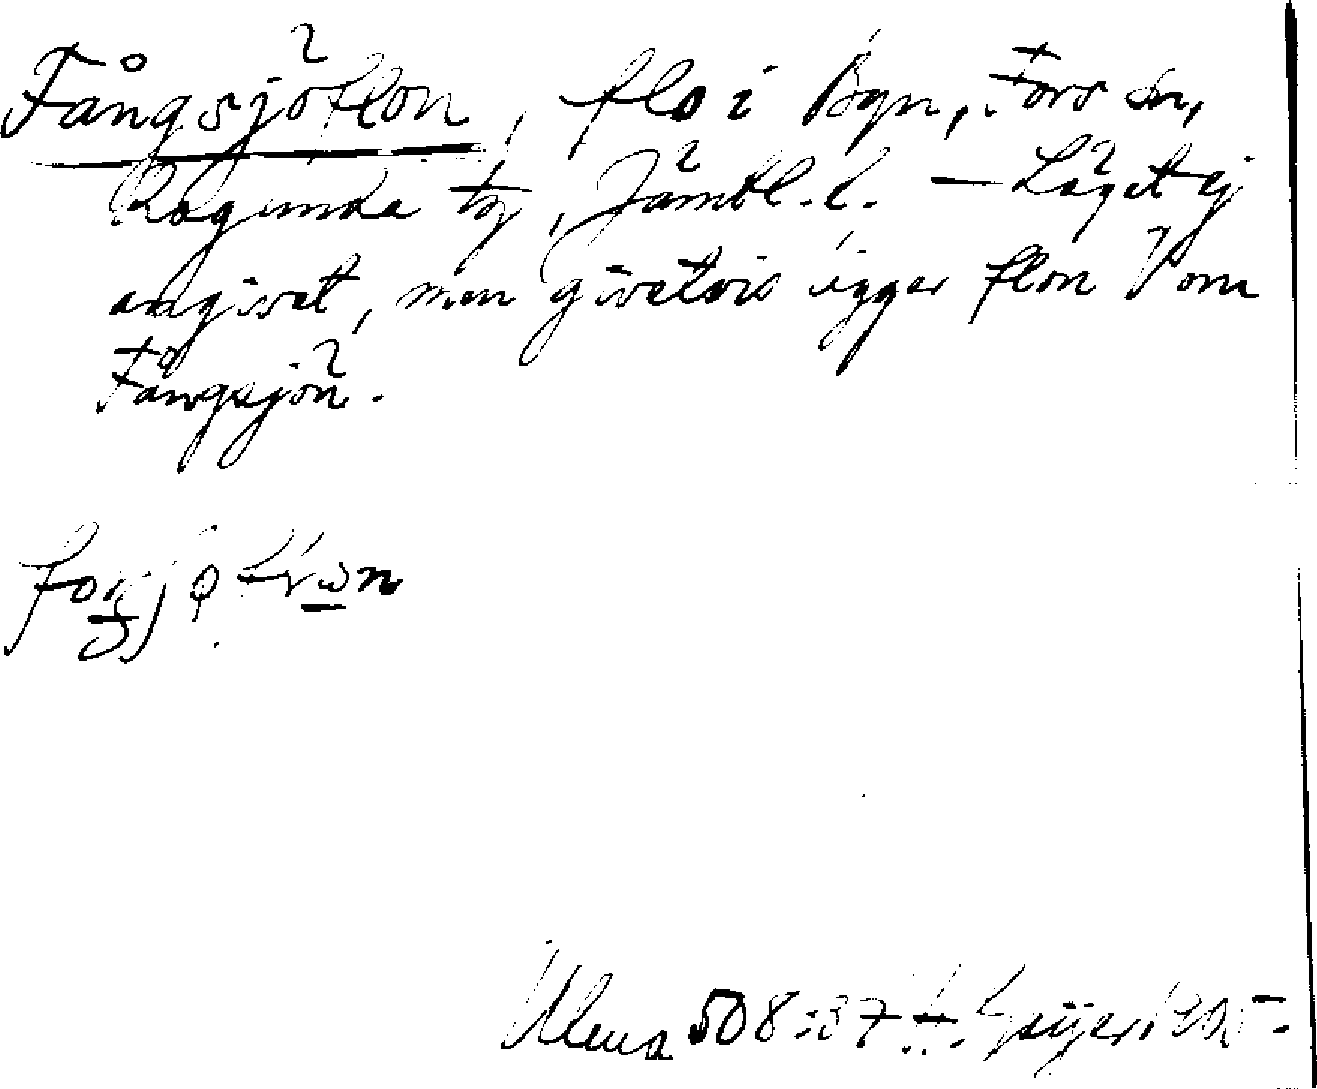 Fångsjöflon, flo i Byn, Fors sn,
Ragunda tg, Jämtl. l. – Läget ej
angivet, men givetvis ligger flon V om
Fångsjön.
Ulma 508:37 H. Geijer 1905.